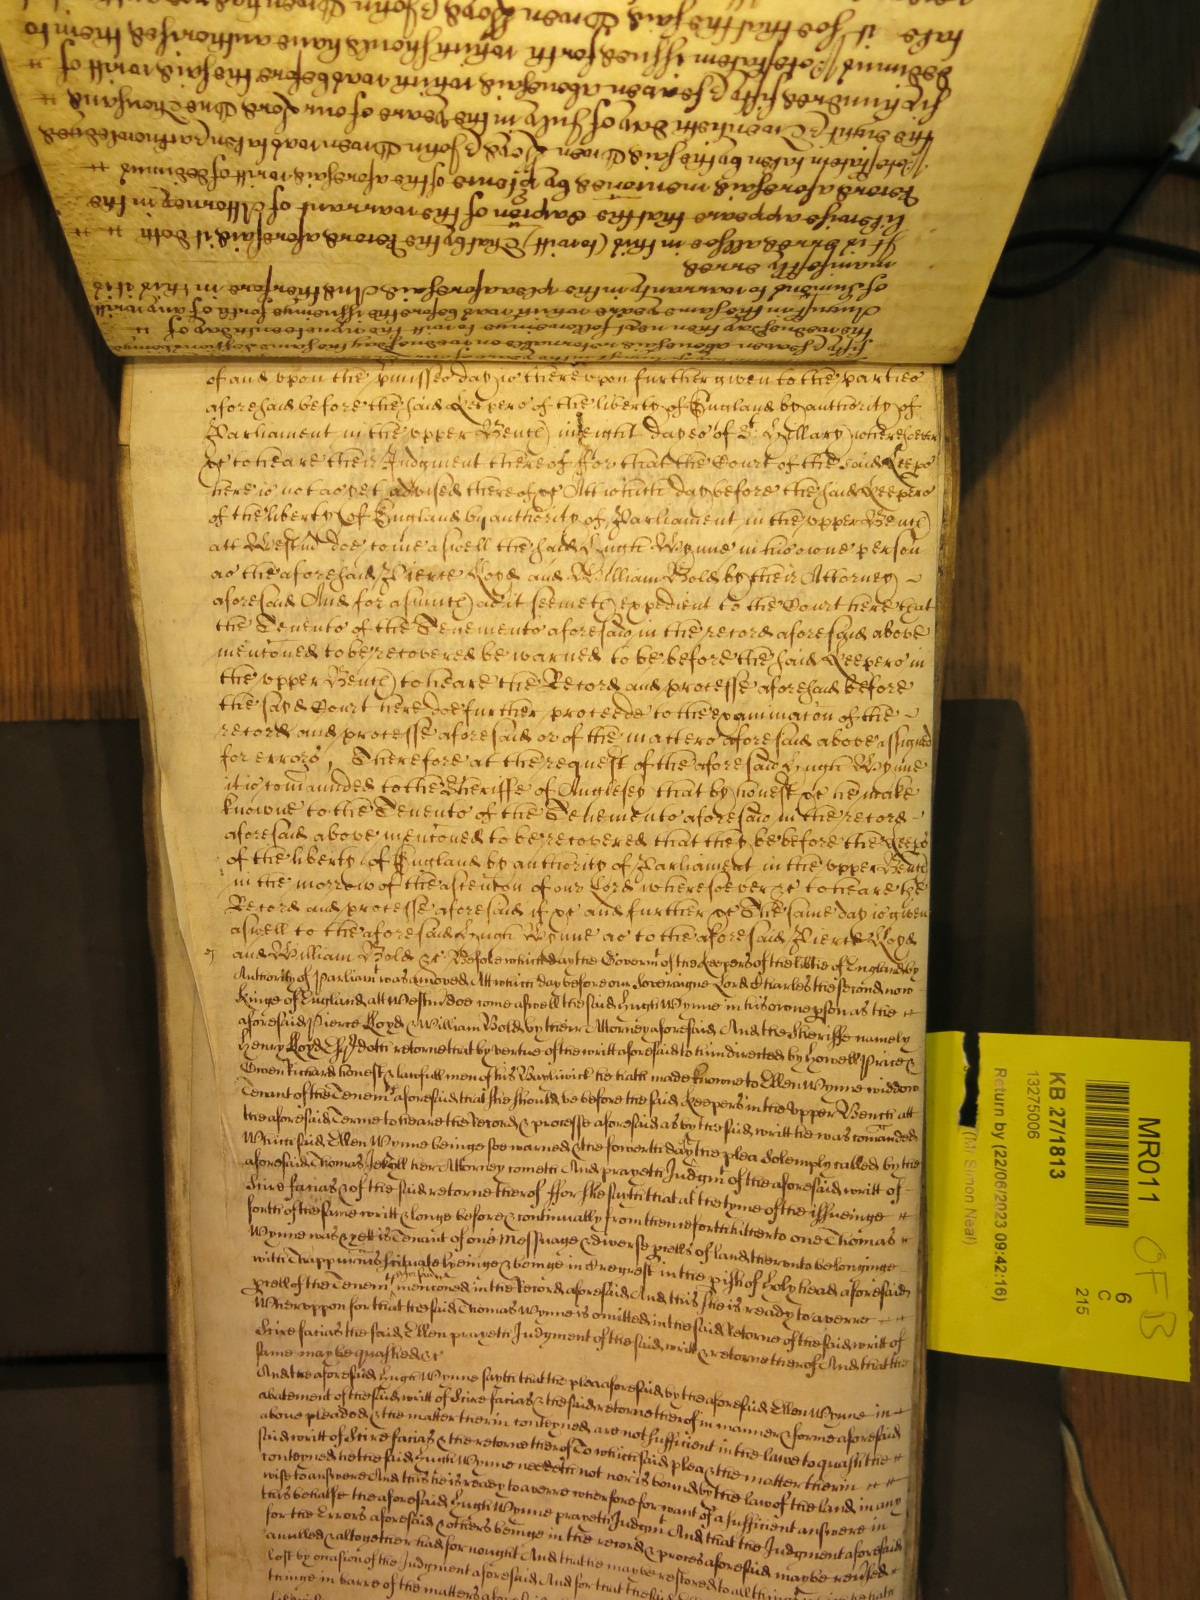 of and upon the premisses day is there upon further given to the parties
aforesaid before the said Keepers of the liberty of England by authority of
Parliament in the upper Bench in eight dayes of St Hillary wheresoever
&c to heare their Judgment thereof ffor that the Court of the said Keeps
here is not as yet advised thereof &c Att which day before the said Keepers
of the liberty of England by authority of Parliament in the upper Bench
att Westmr doe come aswell the said Hugh Wynne in his owne person
as the aforesaid Pierce Lloyd and William Bold by their Attorney
aforesaid And for asmuch as it seemeth expedient to the Court here that
the Tenents of the Tenements aforesaid in the record aforesaid above
mentoned to be recovered be warned to be before the said Keepers in
the upper Bench to heare the Record and processe aforesaid before
the said Court here doe further proceede to the examinacon of the
record and processe aforesaid or of the matters aforesaid above assigned
for errors, Therefore at the request of the aforesaid Hugh Wynne
it is comaunded to the Sheriffe of Anglesey that by honest &c he make
knowne to the Tenents of the Tenements aforesaid in the record
aforesaid above mentoned to be recovered that they be before the Keeps
of the liberty of England by authority of Parliament in the upper Bench
in the morrow of the ascention of our Lord wheresoever &c to heare the
Record and processe aforesaid if &c and further &c The same day is given
aswell to the aforesaid Hugh Wynne as to the aforesaid Pierce Lloyd
and William Bold &c Before which day the Governmt of the Keepers of the libtie of England by
Authority of Parliamt was amoved Att which day before our Soveraigne Lord Charles the second now
Kinge of England att Westmr doe come aswell the said Hugh Wynne in his owne pson as the
aforesaid Pierce Lloyd & William Bold by their Attorney aforesaid And the Sheriffe namely
Henry Lloyd doth retorne that by vertue of the writt aforesaid to him directed by Howell Price &
Owen Richard honest & lawfull men of his Bayliwick he hath made knowne to Ellen Wynne widdow
Tenant of the Tenemts aforesaid that she should be before the said Keepers in the Upper Bench att
the aforesaid Terme to heare the Record & processe aforesaid as by the said writt he was comanded
Which said Ellen Wynne beinge soe warned & the fowerth day of the plea Solemply called by the
aforesaid Thomas Jekyll her Attorney cometh And prayeth Judgmt of the aforesaid writt of
Scire facias & of the said retorne thereof ffor she sayth that at the tyme of the issueinge
forth of the same writt & longe before & continually from thence forth hitherto one Thomas
Wynne was & yett is Tenant of one Messuage & diverse pcells of land thereunto belonginge
with Thappurtnncs scituate lyeinge & beinge in in the pish of Holy head aforesaid
pcell of the Tenemts aforesaid mentioned in the Record aforesaid And this she is ready to averre
Whereuppon for that the said Thomas Wynne is omitted in the said Retorne of the said writt of
Scire facias the said Ellen prayeth Judgment of the said writt & retorne thereof And that the
same may be quashed &c
And the aforesaid Hugh Wynne sayth that the plea aforesaid by the aforesaid Ellen Wynne in
abatement of the said writt of Scire facias & the said retorne thereof in manner & forme aforesaid
above pleaded & the matter therin conteyned are not sufficient in the lawe to quash the
said writt of Scire facias & the retorne thereof To which said plea & the matter therin
conteyned he the said Hugh Wynne needeth not nor is bound by the law of the land in any
wise to answere And this he is ready to averre wherfore for want of a sufficient answere in
this behalfe the aforesaid Hugh Wynne prayeth Judgmt And that the Judgment aforesaid
for the Errors aforesaid & others beinge in the record & proces aforesaid may be reversed
anulled & altogether had for nought And that he may be restored to all things
lost by occasion of the Judgment aforesaid And for that the said
thinge in barre of the matters aforesaid
MR011
KB 27/1813
13275006
Return by (22/06/2023 09:42:16)
(Mr Simon Neal)
6
C
215
OFB
fifty & seaven
the wednesday then next followeinge to witt the nyneteenth day of
August in the same yeare which was before the issueinge forth of any writt
of Sumons to warranty in the plea aforesaid And therefore in this it is
manifestly erred
It is erred alsoe in this (to witt) That by the Record aforesaid it doth
likewise appeare that the Capcon of the warrant of Attorney in the
Record aforesaid mentioned by ptence of the aforesaid writt of dedimus
Potestatem taken by the said Owen Lloyd & John Owen was taken & acknowledged
the eight & Twentieth day of July in the yeare of our Lord One Thousand
six hundred fifty & seaven abovesaid which was before the said writt of
dedimus Potestatem issued forth which should have authorised them to
take it soe that the said Owen Lloyd & John Owen had